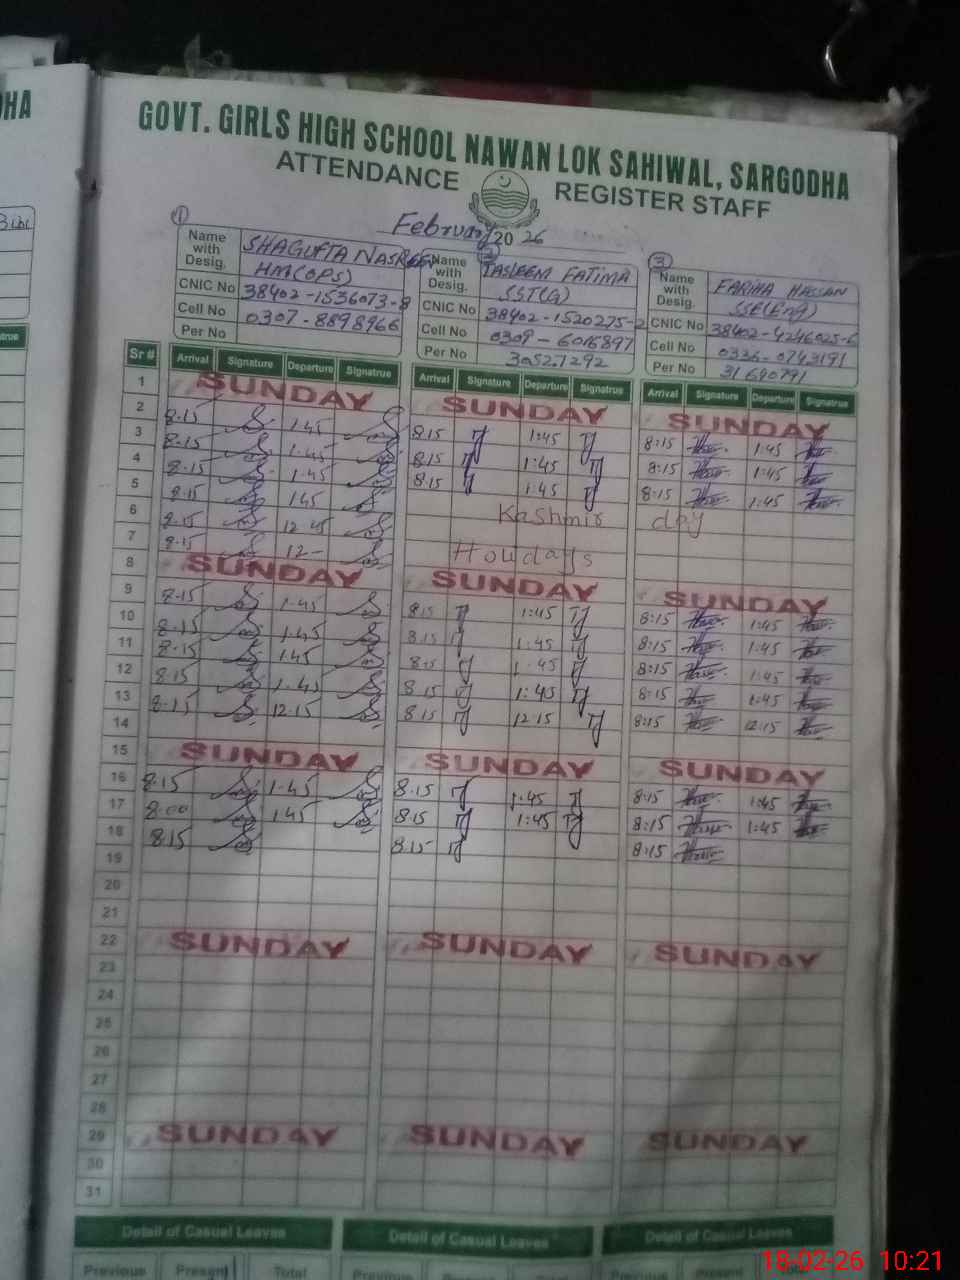 GOVT. GIRLS HIGH SCHOOL NAWAN LOK SAHIWAL, SARGODHA
ATTENDANCE REGISTER STAFF
February 2026
① ② ③
Name with Desig. SHAGUFTA NASREEN HM(OPS)
CNIC No 38402-1536073-8
Cell No 0307-8898966
Per No
Name with Desig. TASLEEM FATIMA SST(G)
CNIC No 38402-1520275-2
Cell No 0309-6016897
Per No 30527292
Name with Desig. FARIHA HASSAN SSE(Eng)
CNIC No 38402-4246025-6
Cell No 0336-0743191
Per No 31690791
Sr # Arrival Signature Departure Signatrue Arrival Signature Departure Signatrue Arrival Signature Departure Signatrue
1 SUNDAY SUNDAY SUNDAY
2 8.15 1.45 8.15 1:45 8:15 1:45
3 8.15 1.45 8.15 1:45 8:15 1:45
4 8.15 1.45 8.15 1:45 8:15 1:45
5 8.15 1.45 Kashmir day
6 8.15 12.45
7 8.15 12- Holidays
8 SUNDAY SUNDAY SUNDAY
9 8.15 1.45 8.15 1:45 8:15 1:45
10 8.15 1.45 8.15 1:45 8:15 1:45
11 8.15 1.45 8.15 1.45 8:15 1:45
12 8.15 1.45 8.15 1:45 8:15 1:45
13 8.15 12.15 8.15 12.15 8:15 12:15
14
15 SUNDAY SUNDAY SUNDAY
16 8.15 1.45 8.15 1.45 8:15 1:45
17 8.00 1.45 8.15 1:45 8:15 1:45
18 8.15 8.15 8:15
19
20
21
22 SUNDAY SUNDAY SUNDAY
23
24
25
26
27
28
29 SUNDAY SUNDAY SUNDAY
30
31
Detail of Casual Leaves Detail of Casual Leaves Detail of Casual Leaves
Previous Present Total
18-02-26 10:21